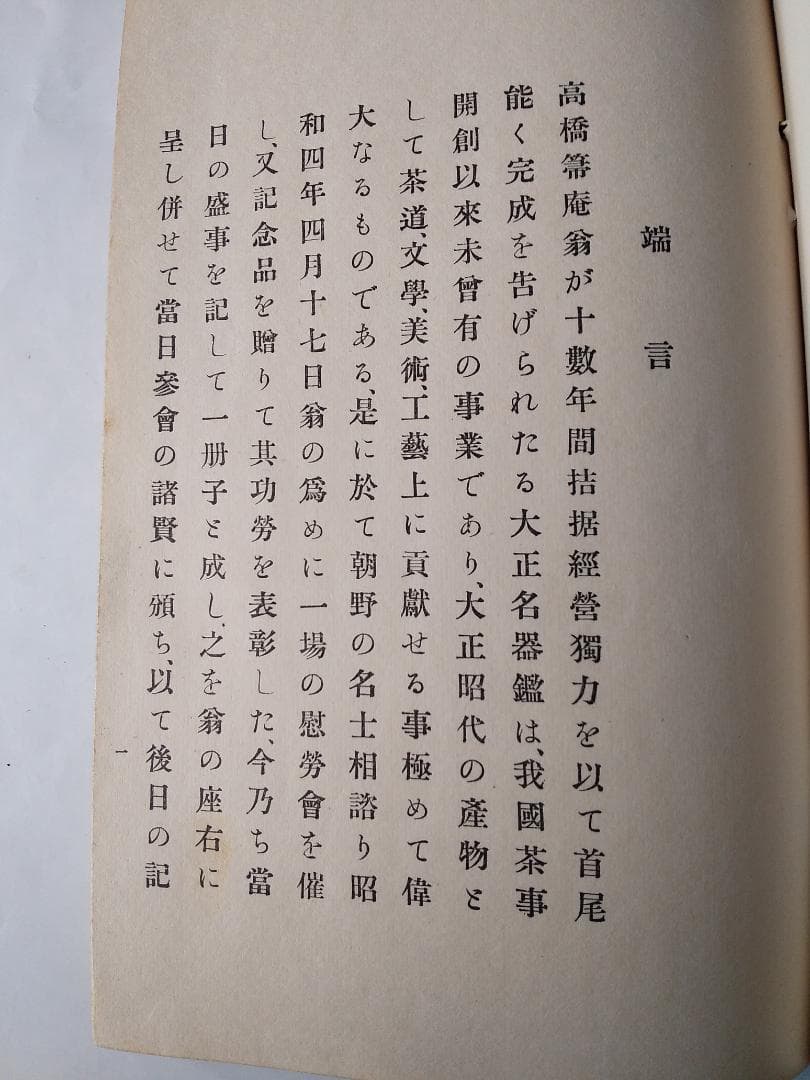 端言
高橋箒庵翁が十數年間拮据經營獨力を以て首尾
能く完成を告げられたる大正名器鑑は、我國茶事
開創以來未曾有の事業であり、大正昭代の產物と
して茶道、文學、美術、工藝上に貢獻せる事極めて偉
大なるものである、是に於て朝野の名士相諮り昭
和四年四月十七日翁の爲めに一場の慰勞會を催
し、又記念品を贈りて其功勞を表彰した、今乃ち當
日の盛事を記して一册子と成し、之を翁の座右に
呈し併せて當日參會の諸賢に頒ち、以て後日の記
一